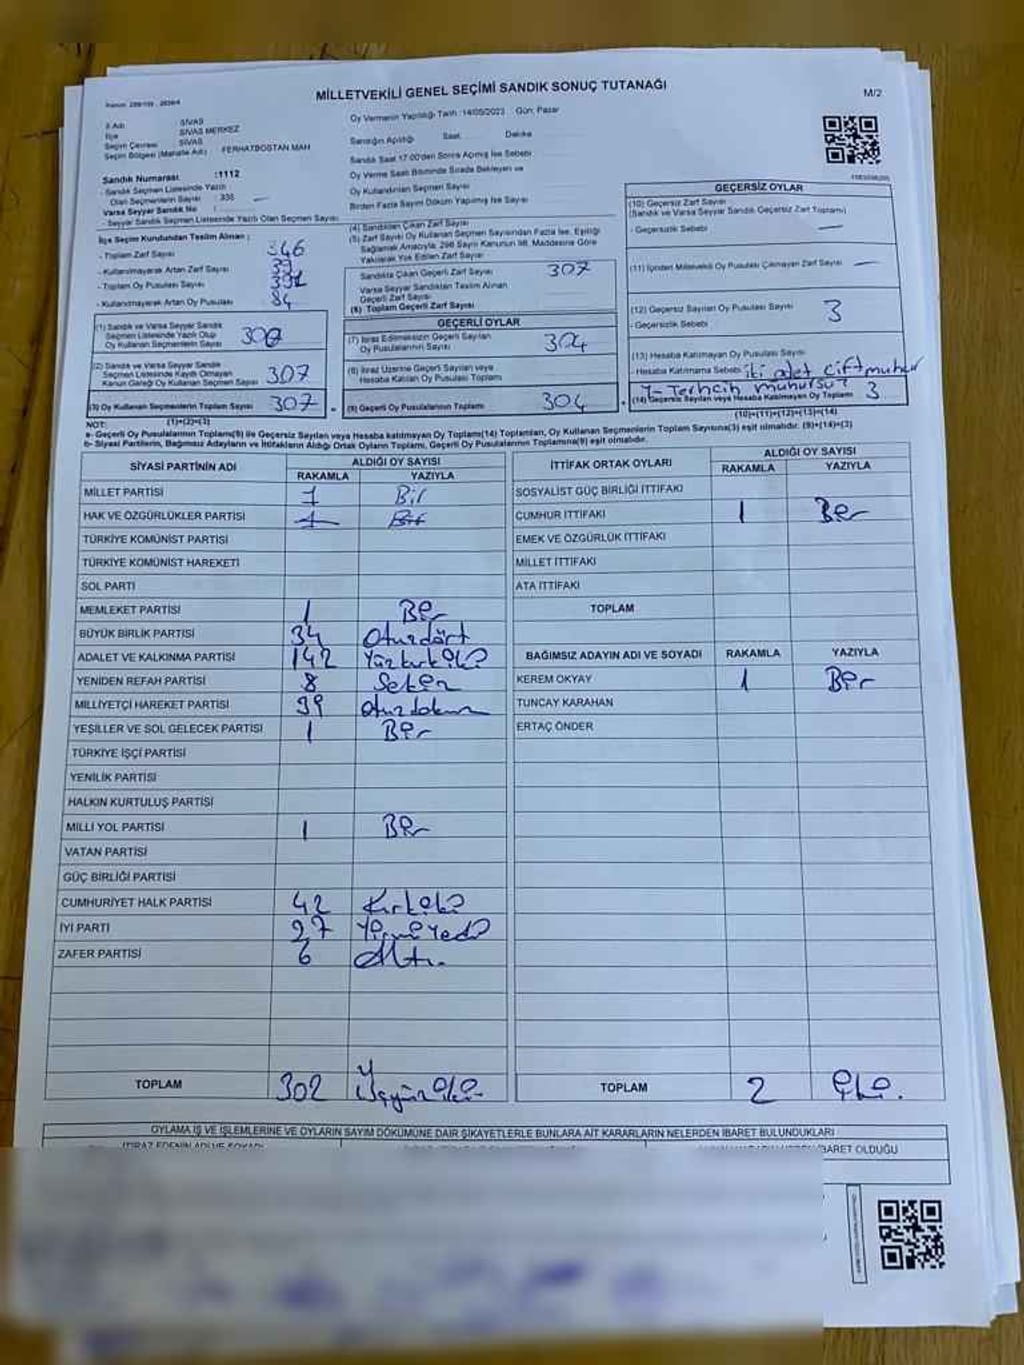 MİLLETVEKİLİ GENEL SEÇİMİ SANDIK SONUÇ TUTANAĞI
M/2
İl Adı : SİVAS
İlçe : SİVAS MERKEZ
Seçim Çevresi : SİVAS
Seçim Bölgesi (Mahalle Adı) : FERHATBOSTAN MAH
Sandık Numarası :1112
- Sandık Seçmen Listesinde Yazılı
Olan Seçmenlerin Sayısı : 336
Varsa Seyyar Sandık No :
- Seyyar Sandık Seçmen Listesinde Yazılı Olan Seçmen Sayısı
Oy Vermenin Yapıldığı Tarih :14/05/2023 Gün: Pazar
Sandığın Açıldığı Saat Dakika
Sandık Saat 17.00'den Sonra Açılmış İse Sebebi
Oy Verme Saati Bitiminde Sırada Bekleyen ve
Oy Kullandırılan Seçmen Sayısı
Birden Fazla Sayım Döküm Yapılmış İse Sayısı
İlçe Seçim Kurulundan Teslim Alınan :
- Toplam Zarf Sayısı 346
- Kullanılmayarak Artan Zarf Sayısı 39
- Toplam Oy Pusulası Sayısı
- Kullanılmayarak Artan Oy Pusulası 84
(1) Sandık ve Varsa Seyyar Sandık
Seçmen Listesinde Yazılı Olup
Oy Kullanan Seçmenlerin Sayısı
(2) Sandık ve Varsa Seyyar Sandık
Seçmen Listesinde Kayıtlı Olmayan
Kanun Gereği Oy Kullanan Seçmen Sayısı 307
(3) Oy Kullanan Seçmenlerin Toplam Sayısı 307
(1)+(2)=(3)
(4) Sandıktan Çıkan Zarf Sayısı
(5) Zarf Sayısı Oy Kullanan Seçmen Sayısından Fazla İse, Eşitliği
Sağlamak Amacıyla; 298 Sayılı Kanunun 98. Maddesine Göre
Yakılarak Yok Edilen Zarf Sayısı
Sandıkta Çıkan Geçerli Zarf Sayısı 307
Varsa Seyyar Sandıktan Teslim Alınan
Geçerli Zarf Sayısı
(6) Toplam Geçerli Zarf Sayısı
GEÇERLİ OYLAR
(7) İtiraz Edilmeksizin Geçerli Sayılan
Oy Pusulalarının Sayısı 304
(8) İtiraz Üzerine Geçerli Sayılan veya
Hesaba Katılan Oy Pusulası Toplamı
(9) Geçerli Oy Pusulalarının Toplamı 304
GEÇERSİZ OYLAR
(10) Geçersiz Zarf Sayısı
(Sandık ve Varsa Seyyar Sandık Geçersiz Zarf Toplamı)
- Geçersizlik Sebebi —
(11) İçinden Milletvekili Oy Pusulası Çıkmayan Zarf Sayısı —
(12) Geçersiz Sayılan Oy Pusulası Sayısı 3
- Geçersizlik Sebebi
(13) Hesaba Katılmayan Oy Pusulası Sayısı
- Hesaba Katılmama Sebebi iki adet çift mühür
Tercih mühürsü
(14) Geçersiz Sayılan veya Hesaba Katılmayan Oy Toplamı 3
(10)+(11)+(12)+(13)=(14)
NOT:
a- Geçerli Oy Pusulalarının(9) ile Geçersiz Sayılan veya Hesaba katılmayan Oy Toplamı(14) Toplamları, Oy Kullanan Seçmenlerin Toplam Sayısına(3) eşit olmalıdır. (9)+(14)=(3)
b- Siyasi Partilerin, Bağımsız Adayların ve İttifakların Aldığı Ortak Oyların Toplamı, Geçerli Oy Pusulalarının Toplamına(9) eşit olmalıdır.
SİYASİ PARTİNİN ADI ALDIĞI OY SAYISI
RAKAMLA YAZIYLA
MİLLET PARTİSİ 1 Bir
HAK VE ÖZGÜRLÜKLER PARTİSİ 1 Bir
TÜRKİYE KOMÜNİST PARTİSİ
TÜRKİYE KOMÜNİST HAREKETİ
SOL PARTİ
MEMLEKET PARTİSİ 1 Bir
BÜYÜK BİRLİK PARTİSİ 34 Otuzdört
ADALET VE KALKINMA PARTİSİ 142 Yüzkırkiki
YENİDEN REFAH PARTİSİ 8 Sekiz
MİLLİYETÇİ HAREKET PARTİSİ 39 Otuzdokuz
YEŞİLLER VE SOL GELECEK PARTİSİ 1 Bir
TÜRKİYE İŞÇİ PARTİSİ
YENİLİK PARTİSİ
HALKIN KURTULUŞ PARTİSİ
MİLLİ YOL PARTİSİ 1 Bir
VATAN PARTİSİ
GÜÇ BİRLİĞİ PARTİSİ
CUMHURİYET HALK PARTİSİ 42 Kırkiki
İYİ PARTİ 27 Yirmi yedi
ZAFER PARTİSİ 6 Altı.
TOPLAM 302 Üçyüz iki
İTTİFAK ORTAK OYLARI ALDIĞI OY SAYISI
RAKAMLA YAZIYLA
SOSYALİST GÜÇ BİRLİĞİ İTTİFAKI
CUMHUR İTTİFAKI 1 Bir
EMEK VE ÖZGÜRLÜK İTTİFAKI
MİLLET İTTİFAKI
ATA İTTİFAKI
TOPLAM
BAĞIMSIZ ADAYIN ADI VE SOYADI RAKAMLA YAZIYLA
KEREM OKYAY 1 Bir
TUNCAY KARAHAN
ERTAÇ ÖNDER
TOPLAM 2 İki.
OYLAMA İŞ VE İŞLEMLERİNE VE OYLARIN SAYIM DÖKÜMÜNE DAİR ŞİKAYETLERLE BUNLARA AİT KARARLARIN NELERDEN İBARET BULUNDUKLARI
İTİRAZ EDENİN ADI VE SOYADI
İBARET OLDUĞU